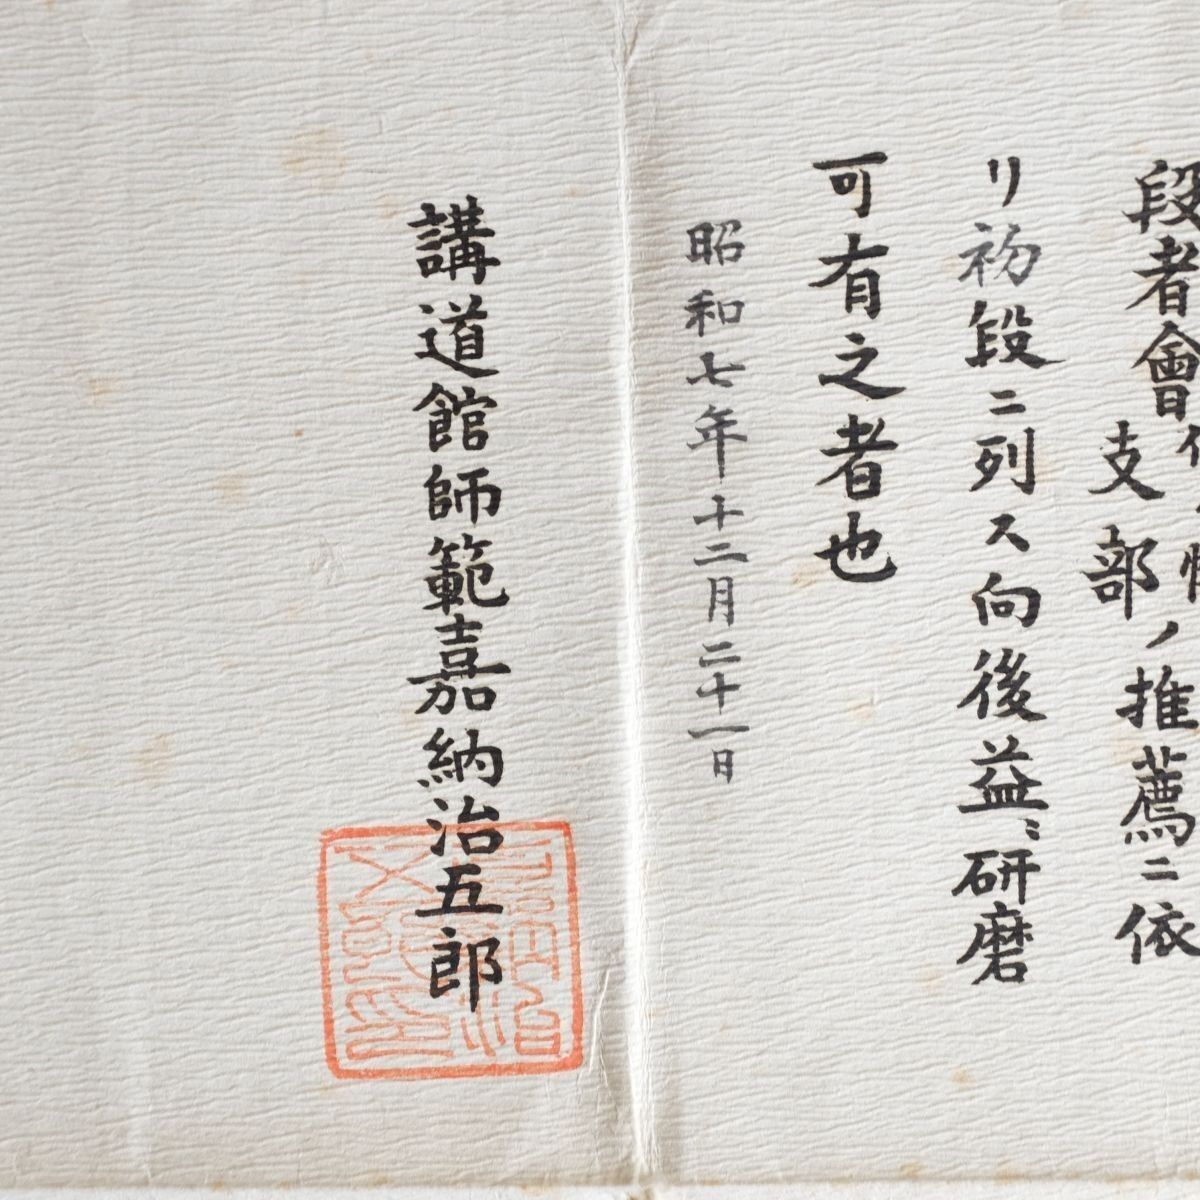 段者會
支部ノ推薦ニ依
リ初段ニ列ス向後益〻研磨
可有之者也
昭和七年十二月二十一日
講道館師範嘉納治五郎